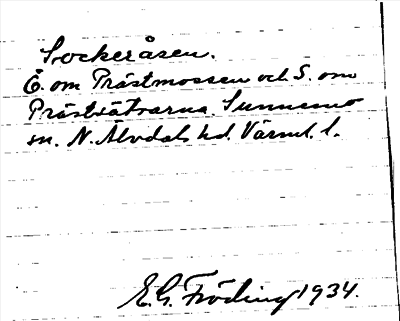 Sockeråsen.
Ö. om Prästmossen och S. om
Prästsätrarna. Sunnemo
sn. N. Älvdals hd. Värml. l.
E. G. Fröding 1934.